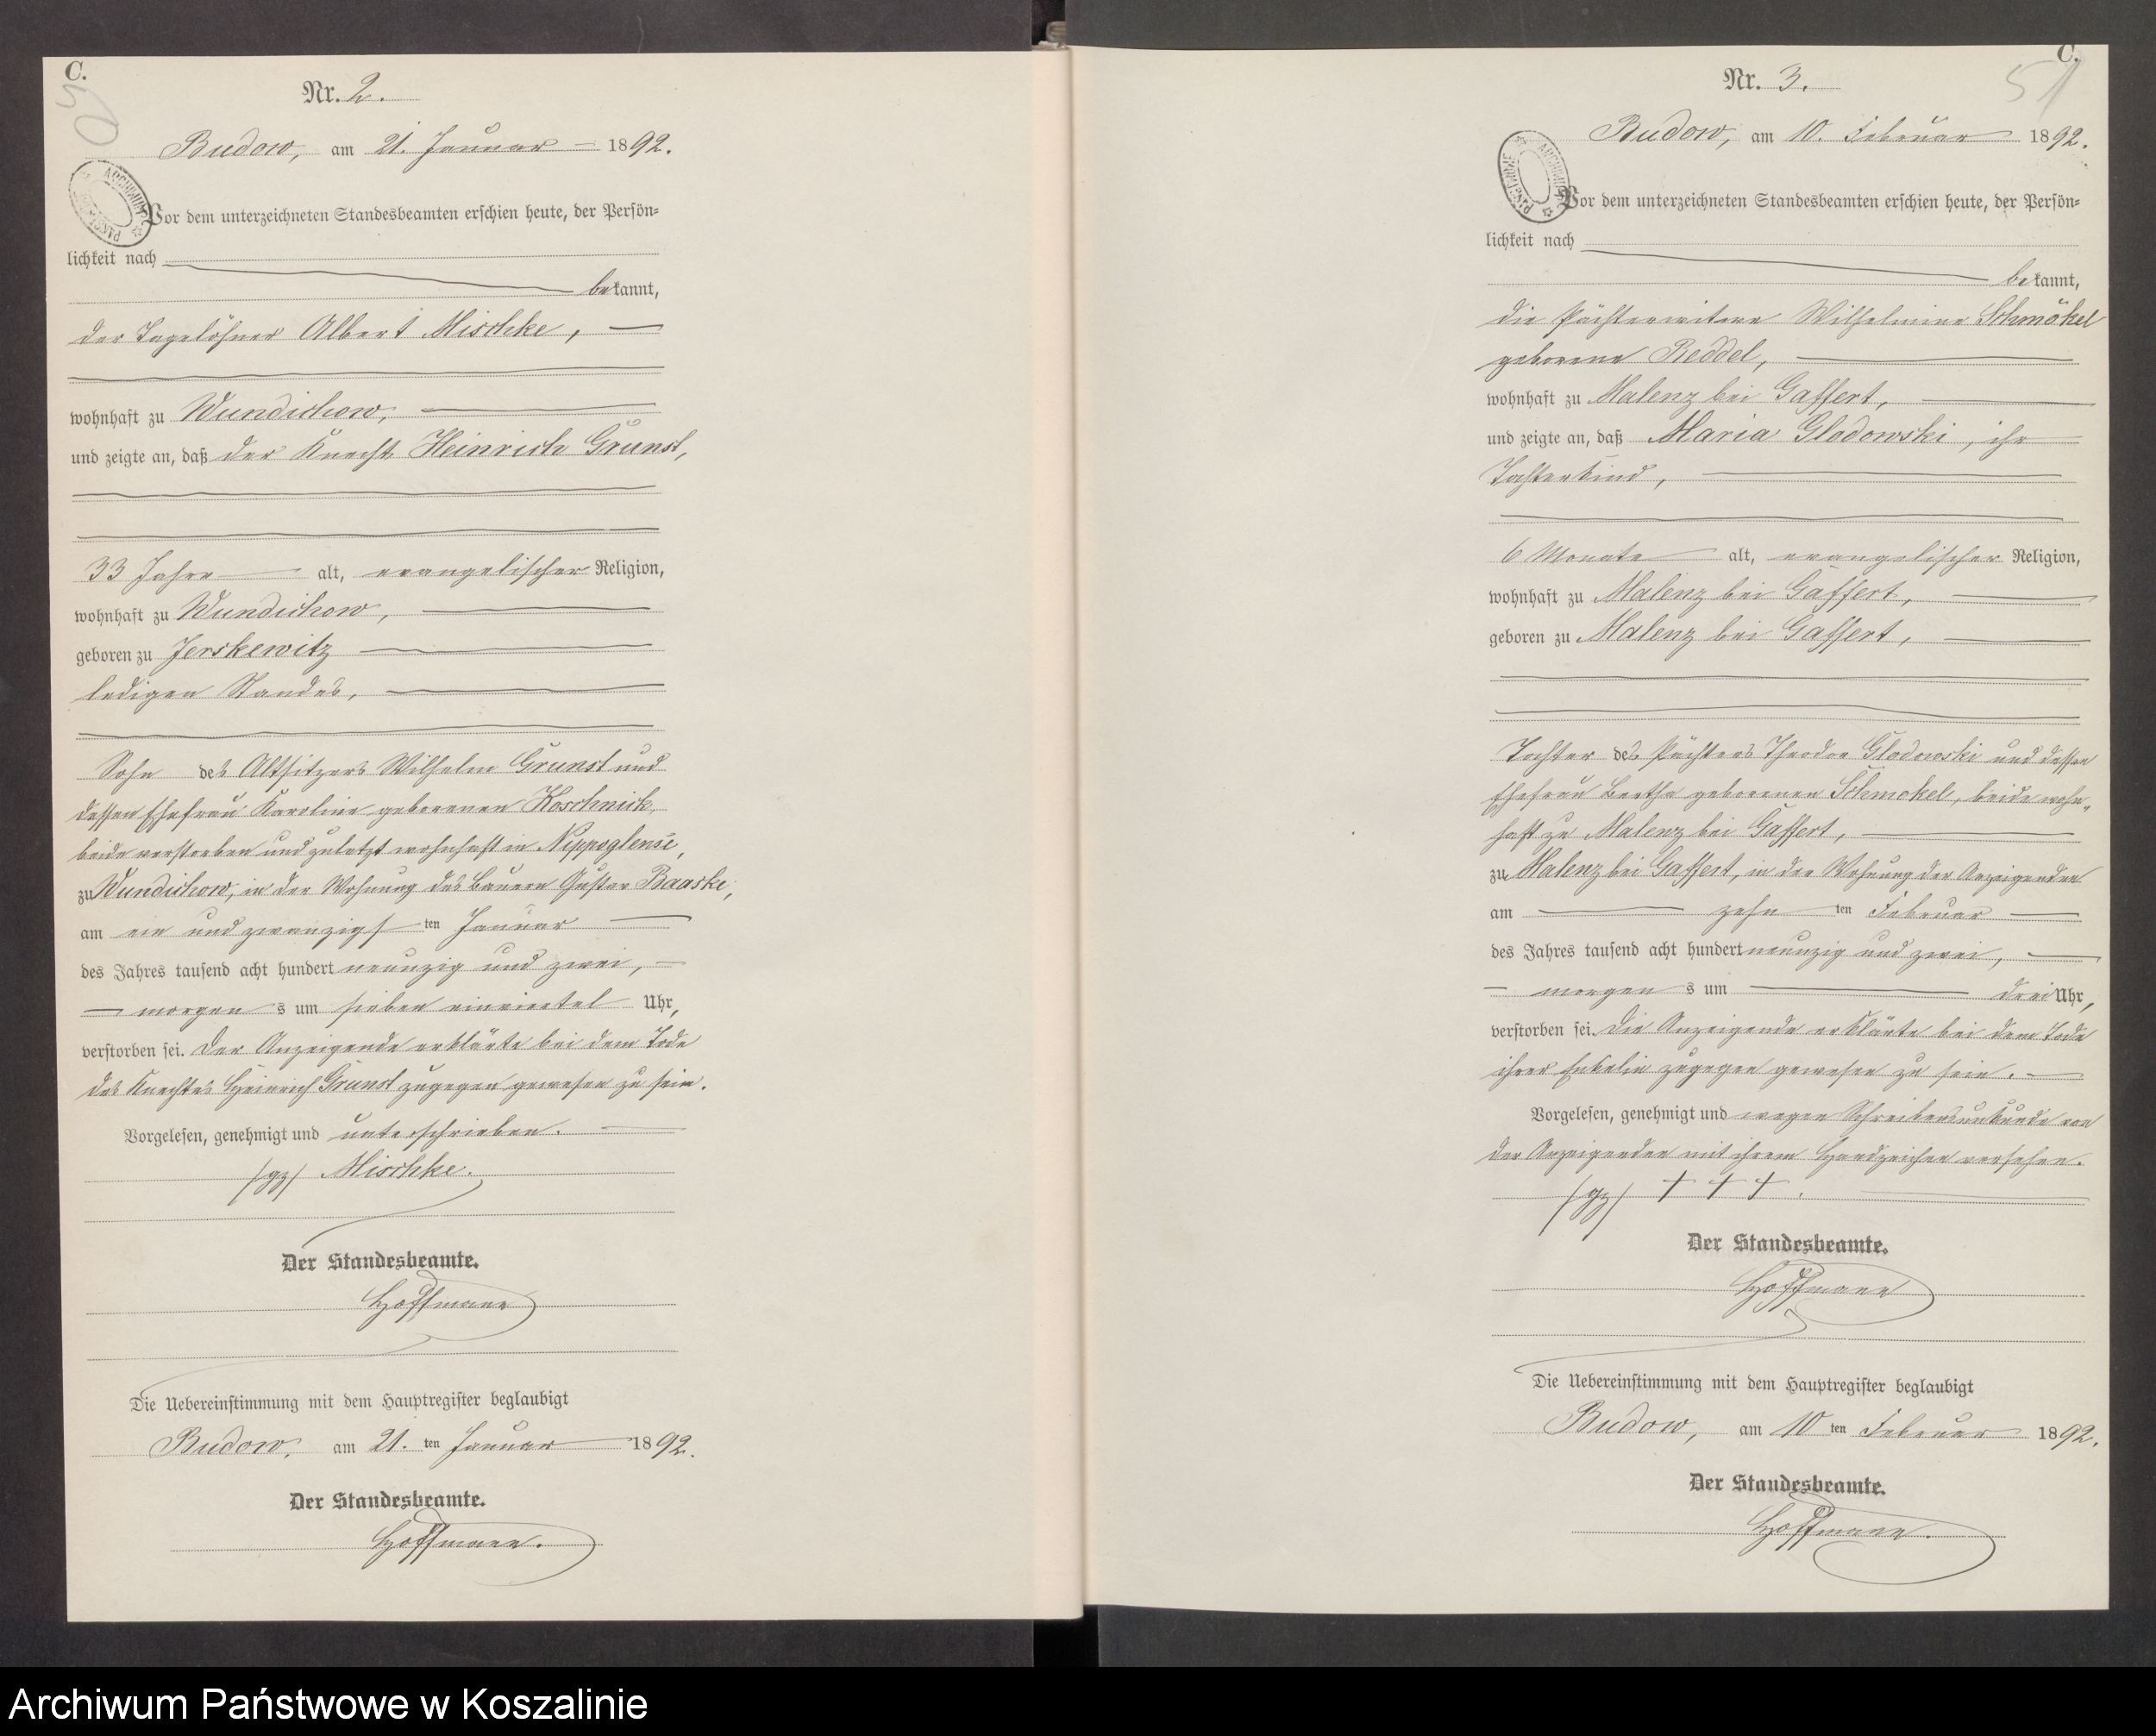 C.
50
Nr. 2.
Budow, am 21. Januar 1892.
Vor dem unterzeichneten Standesbeamten erschien heute, der Persön=
lichkeit nach
bekannt,
der Tagelöhner Albert Mischke,
wohnhaft zu Wundichow,
und zeigte an, daß der Knecht Heinrich Grunst,
33 Jahre alt, evangelischer Religion,
wohnhaft zu Wundichow,
geboren zu Jerskewitz
ledigen Standes,
Sohn des Altsitzers Wilhelm Grunst und
dessen Ehefrau Karoline geborenen Koschnick,
beide verstorben und zuletzt wohnhaft in Nippoglense,
zu Wundichow, in der Wohnung des Bauern Gustav Baaske,
am ein und zwanzigsten Januar
des Jahres tausend acht hundert neunzig und zwei,
morgens um sieben einviertel Uhr,
verstorben sei. Der Anzeigende erklärte bei dem Tode
des Knechtes Heinrich Grunst zugegen gewesen zu sein.
Vorgelesen, genehmigt und unterschrieben.
/gz/ Mischke.
Der Standesbeamte.
Hoffmann
Die Uebereinstimmung mit dem Hauptregister beglaubigt
Budow, am 21.ten Januar 1892.
Der Standesbeamte.
Hoffmann.
C.
51
Nr. 3.
Budow, am 10. Februar 1892.
Vor dem unterzeichneten Standesbeamten erschien heute, der Persön=
lichkeit nach
bekannt,
die Pächterwitwe Wilhelmine Schmökel
geborene Reddel,
wohnhaft zu Malenz bei Gaffert,
und zeigte an, daß Maria Glodowski, ihr
Tochterkind,
6 Monate alt, evangelischer Religion,
wohnhaft zu Malenz bei Gaffert,
geboren zu Malenz bei Gaffert,
Tochter des Pächters Theodor Glodowski und dessen
Ehefrau Bertha geborenen Schmökel, beide wohn=
haft zu Malenz bei Gaffert,
zu Malenz bei Gaffert, in der Wohnung der Anzeigenden
am zehnten Februar
des Jahres tausend acht hundert neunzig und zwei,
morgens um drei Uhr,
verstorben sei. Die Anzeigende erklärte bei dem Tode
ihrer Enkelin zugegen gewesen zu sein.
Vorgelesen, genehmigt und wegen Schreibensunkunde von
der Anzeigenden mit ihrem Handzeichen versehen.
/gz/ + + +.
Der Standesbeamte.
Hoffmann
Die Uebereinstimmung mit dem Hauptregister beglaubigt
Budow, am 10ten Februar 1892.
Der Standesbeamte.
Hoffmann.
Archiwum Państwowe w Koszalinie